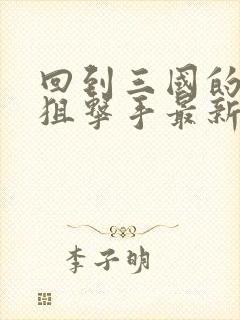 回到三國的
狙擊手最新
李子明